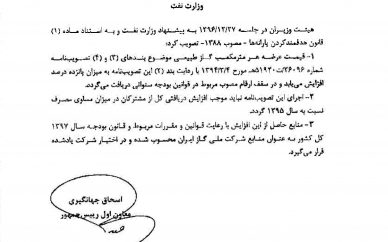 وزارت نفت
هیئت وزیران در جلسه ۱۳۹۶/۱۲/۲۷ به پیشنهاد وزارت نفت و به استناد ماده (۱)
قانون هدفمندکردن یارانه‌ها - مصوب ۱۳۸۸- تصویب کرد:
۱- قیمت عرضه هر مترمکعب گاز طبیعی موضوع بندهای (۳) و (۴) تصویب‌نامه
شماره ۳۶۰۹۶/ت۵۱۹۴۰هـ مورخ ۱۳۹۴/۳/۴ با رعایت بند (۲) این تصویب‌نامه به میزان پانزده درصد
افزایش می‌یابد و در سقف ارقام مصوب مربوط در قوانین بودجه سنواتی دریافت می‌گردد.
۲- اجرای این تصویب‌نامه نباید موجب افزایش دریافتی کل از مشترکان در میزان مساوی مصرف
نسبت به سال ۱۳۹۵ گردد.
۳- منابع حاصل از این افزایش با رعایت قوانین و مقررات مربوط و قانون بودجه سال ۱۳۹۷
کل کشور به عنوان منابع شرکت ملی گاز ایران محسوب شده و در اختیار شرکت یادشده
قرار می‌گیرد.
اسحاق جهانگیری
معاون اول رییس‌جمهور